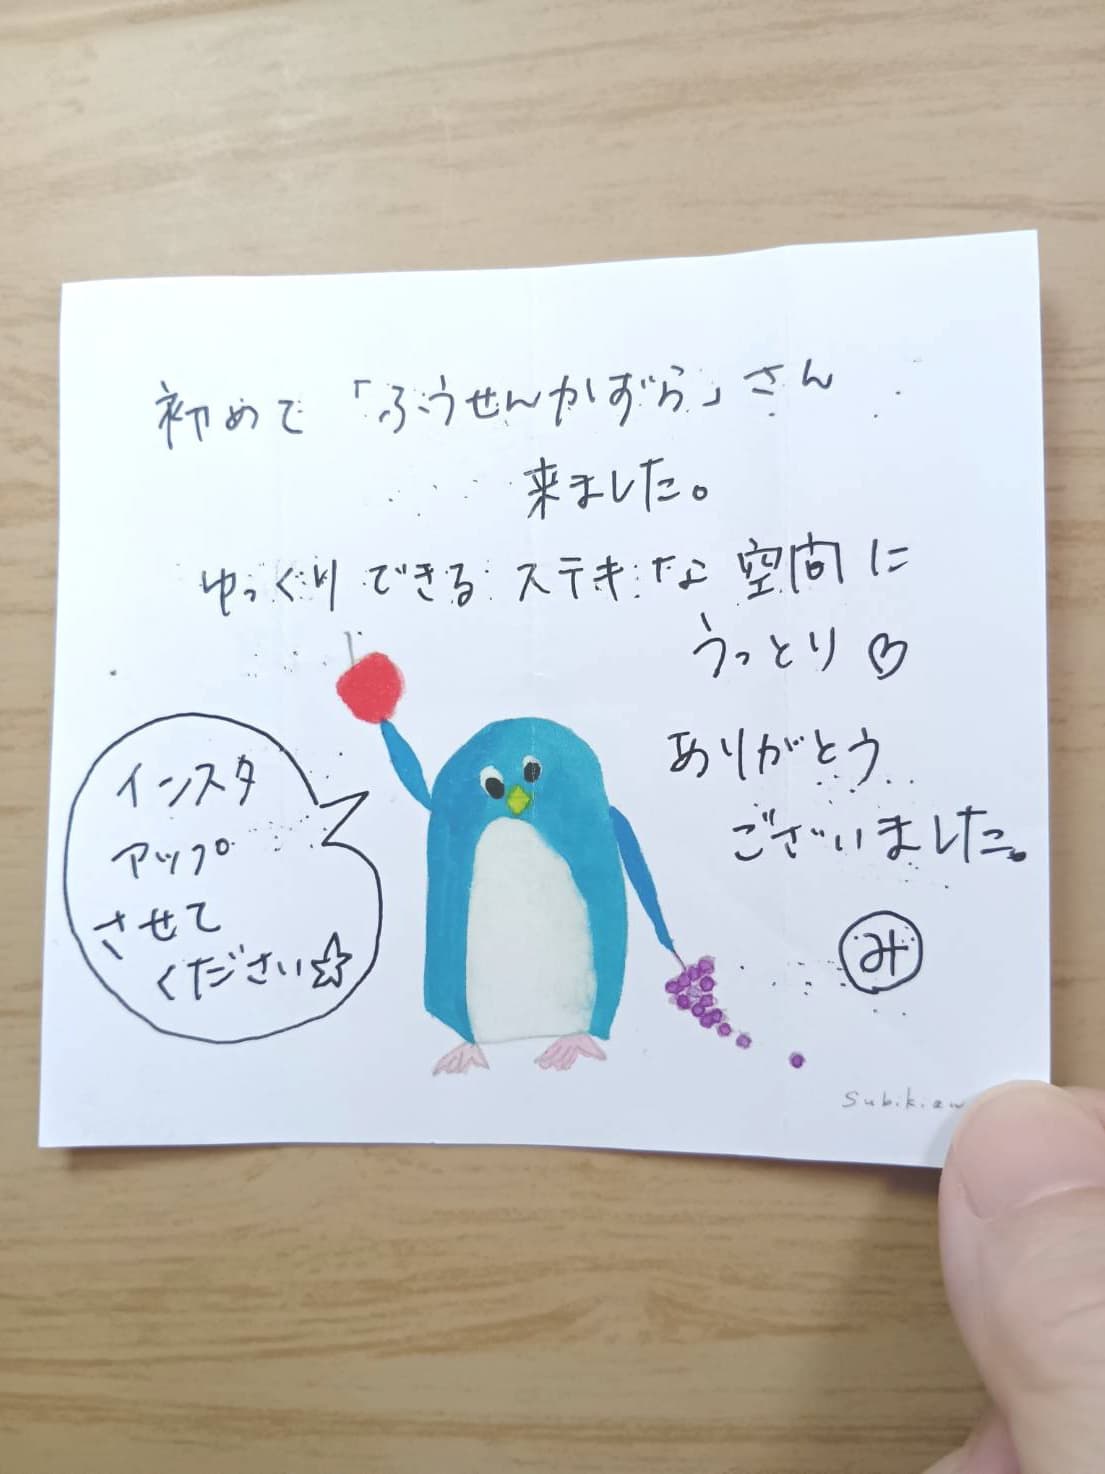 初めて「ふうせんかずら」さん
来ました。
ゆっくりできるステキな空間に
うっとり♡
ありがとう
ございました。
み
インスタ
アップ
させて
ください☆